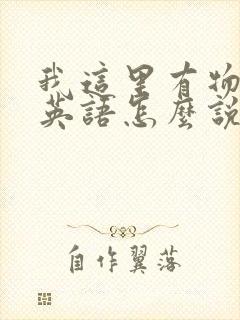 我這里有物
英語怎麼說
自作翼落